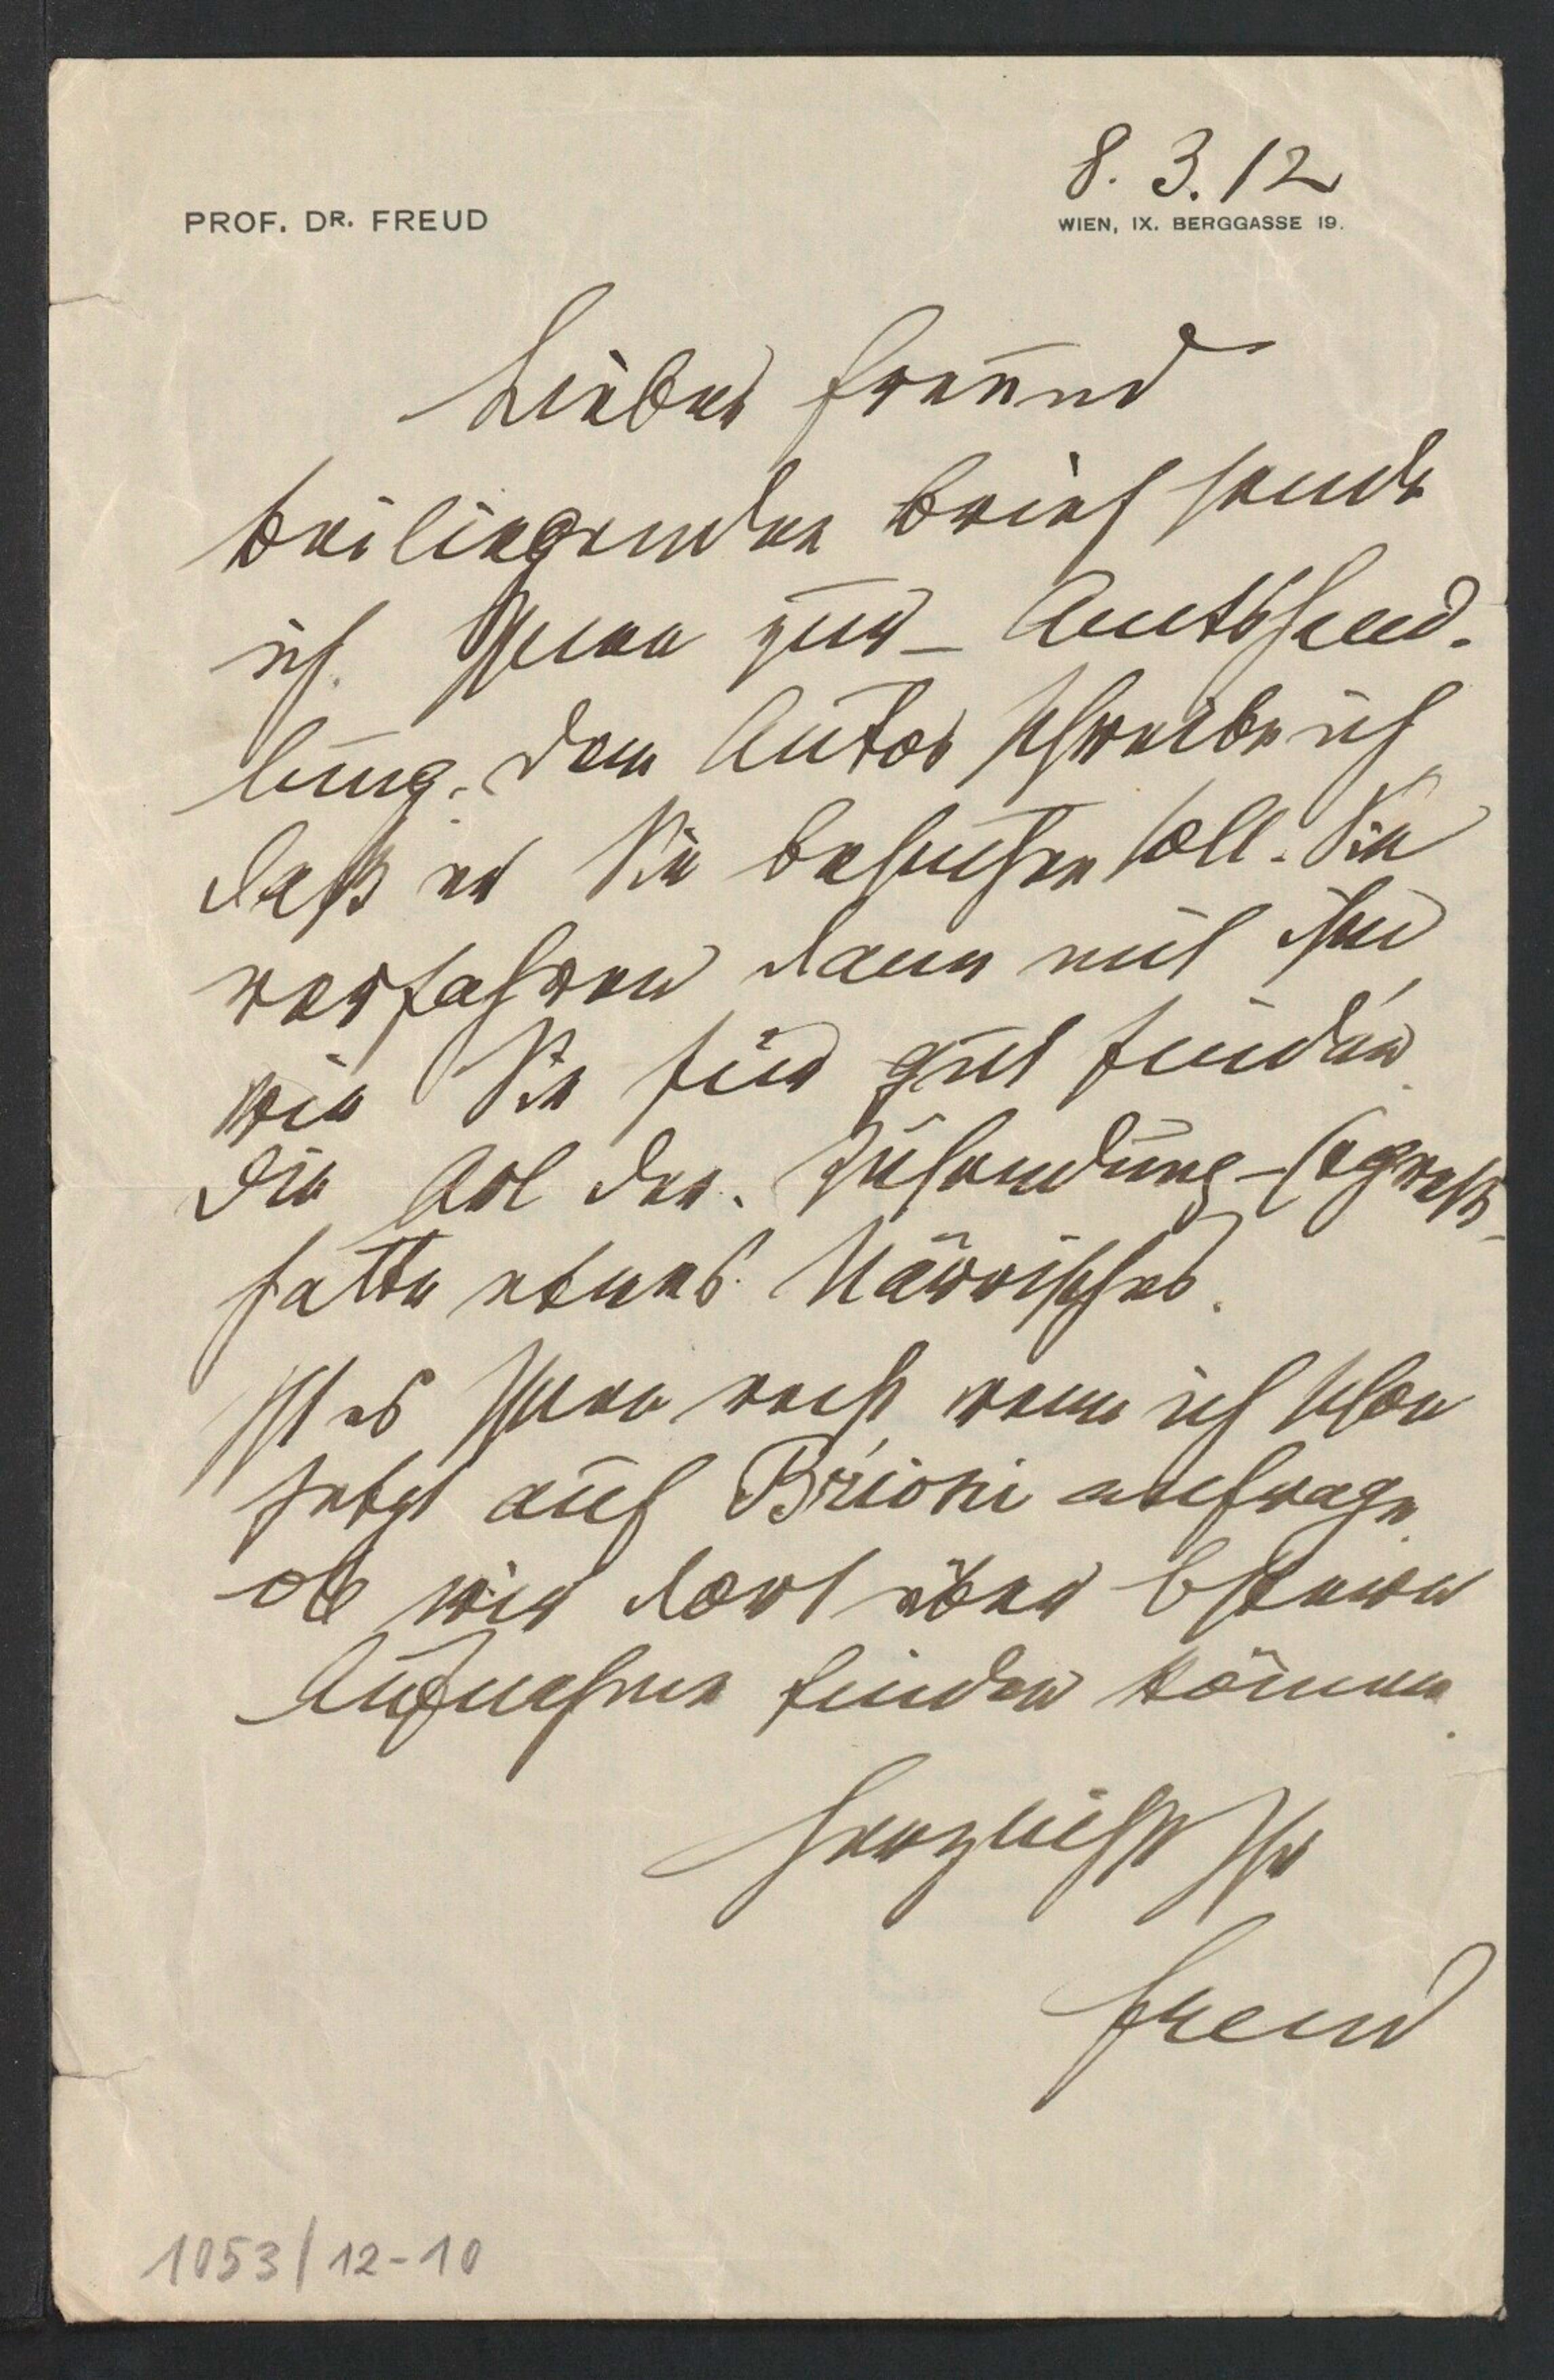 8. 3. 12
PROF. DR. FREUD
WIEN, IX. BERGGASSE 19.
Lieber Freund
Beiliegenden Brief sende
ich Ihnen zur Amtshand-
lung. Dem Autor schreibe ich
daß er Sie besuchen soll. Sie
verfahren dann mit ihm
wie Sie für gut finden.
Die Art der Zusendung
hatte etwas Närrisches.
Ist es Ihnen recht wenn ich schon
jetzt auf Brioni anfrage
ob wir dort über Ostern
Aufnahme finden können.
Herzlichst Ihr
Freud
1053/12-10